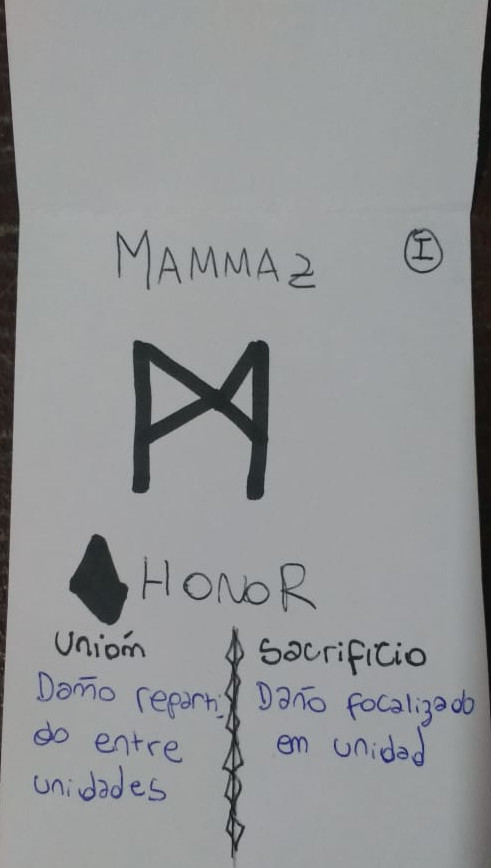 MAMMAZ
I
ᛗ
HONOR
Unión
Daño reparti
do entre
unidades
Sacrificio
Daño focalizado
en unidad